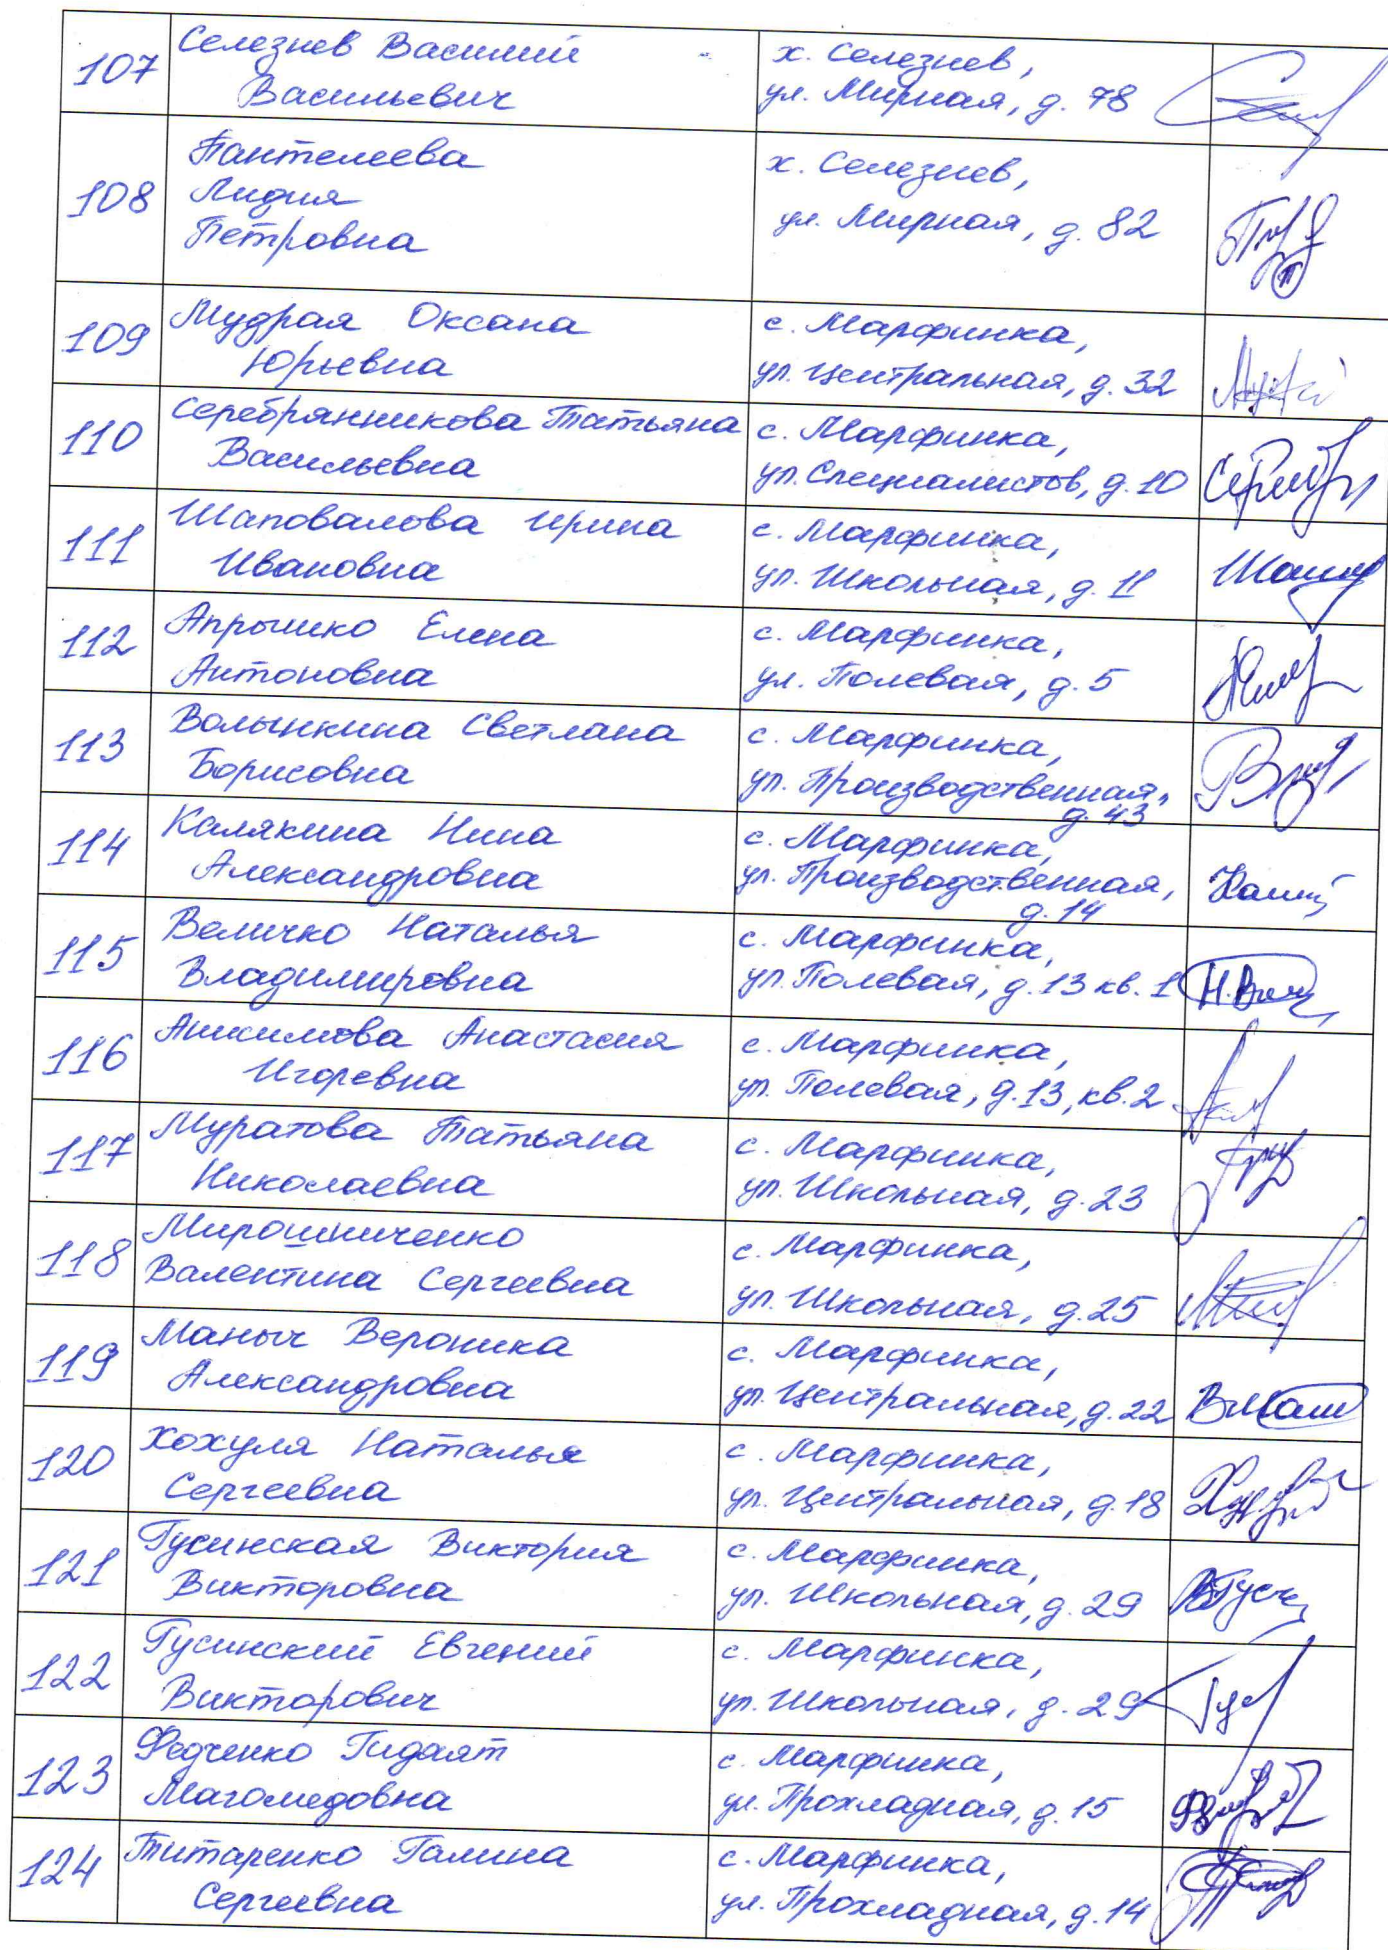 107
Селезнев Василий
Васильевич
х. Селезнев,
ул. Мирная, д. 78
108
Пантелеева
Лидия
Петровна
х. Селезнев,
ул. Мирная, д. 82
109
Мудрая Оксана
Юрьевна
с. Марфинка,
ул. Центральная, д. 32
110
Серебрянникова Татьяна
Васильевна
с. Марфинка,
ул. Специалистов, д. 10
111
Шаповалова Ирина
Ивановна
с. Марфинка,
ул. Школьная, д. 11
112
Апрышко Елена
Антоновна
с. Марфинка,
ул. Полевая, д. 5
113
Волынкина Светлана
Борисовна
с. Марфинка,
ул. Производственная,
д. 43
114
Калякина Нина
Александровна
с. Марфинка,
ул. Производственная,
д. 14
115
Величко Наталья
Владимировна
с. Марфинка,
ул. Полевая, д. 13 кв. 1
116
Анисимова Анастасия
Игоревна
с. Марфинка,
ул. Полевая, д. 13, кв. 2
117
Муратова Татьяна
Николаевна
с. Марфинка,
ул. Школьная, д. 23
118
Мирошниченко
Валентина Сергеевна
с. Марфинка,
ул. Школьная, д. 25
119
Маныч Вероника
Александровна
с. Марфинка,
ул. Центральная, д. 22
120
Хохуля Наталья
Сергеевна
с. Марфинка,
ул. Центральная, д. 18
121
Гусинская Виктория
Викторовна
с. Марфинка,
ул. Школьная, д. 29
122
Гусинский Евгений
Викторович
с. Марфинка,
ул. Школьная, д. 29
123
Федченко Гидаят
Магомедовна
с. Марфинка,
ул. Прохладная, д. 15
124
Титаренко Галина
Сергеевна
с. Марфинка,
ул. Прохладная, д. 14